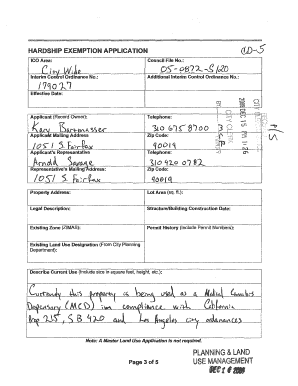 HARDSHIP EXEMPTION APPLICATION
CD-5
ICO Area:
City Wide
Council File No.:
05-0872-S120
Interim Control Ordinance No.:
179027
Additional Interim Control Ordinance No.:
Effective Date:
Applicant (Record Owner):
Kary
Telephone:
310 675 8700
Applicant Mailing Address
1051 S Fairfax
Zip Code:
90019
Applicant's Representative
Arnold Savage
Telephone:
310 420 0782
Representative's Mailing Address:
1051 S Fairfax
Zip Code:
90019
CITY CLERK
BY
Property Address:
Lot Area (sq. ft.):
Legal Description:
Structure/Building Construction Date:
Existing Zone (ZIMAS):
Permit History (Include Permit Numbers):
Existing Land Use Designation (From City Planning Department):
Describe Current Use (Include size in square feet, height, etc.):
Currently this property is being used as a Medical Cannabis
Dispensary (MCD) in compliance with California
Prop 215, SB 420 and Los Angeles city ordinances
Note: A Master Land Use Application is not required.
Page 3 of 5
PLANNING & LAND
USE MANAGEMENT
DEC 16 2009